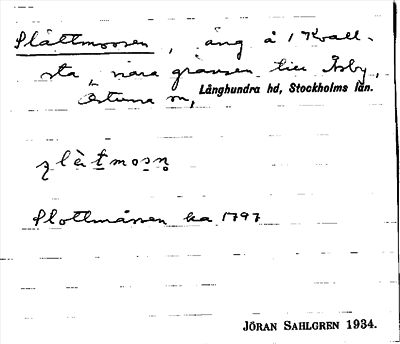 Slåttmossen, äng å 1 Kvall-
sta, nära gränsen till Åsby,
Östuna sn, Långhundra hd, Stockholms län.
slåtmosn̥
Slottmåssen ka 1797
JÖRAN SAHLGREN 1934.